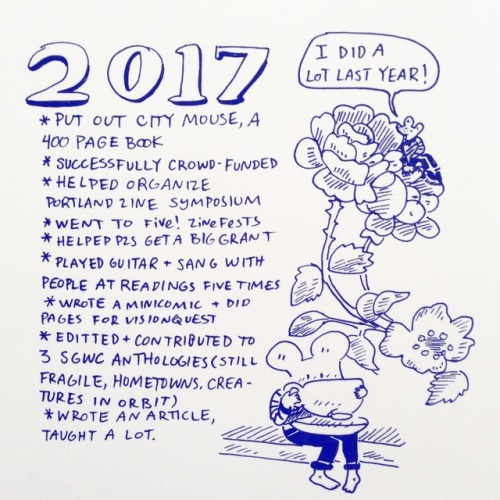 2017
I DID A
LOT LAST YEAR!
* PUT OUT CITY MOUSE, A
400 PAGE BOOK
* SUCCESSFULLY CROWD-FUNDED
* HELPED ORGANIZE
PORTLAND ZINE SYMPOSIUM
* WENT TO FIVE! ZINEFESTS
* HELPEP PZS GET A BIG GRANT
* PLAYED GUITAR + SANG WITH
PEOPLE AT READINGS FIVE TIMES
* WROTE A MINICOMIC + DID
PAGES FOR VISIONQUEST
* EDITTED + CONTRIBUTED TO
3 SGWC ANTHOLOGIES (STILL
FRAGILE, HOMETOWNS, CREA-
TURES IN ORBIT)
* WROTE AN ARTICLE,
TAUGHT A LOT.